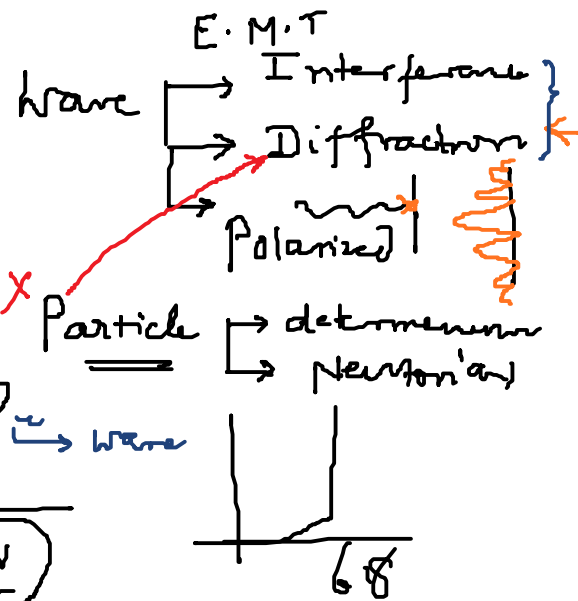 E. M. T
Wave
Interference
Diffraction
Polarized
X
Particle
determinism
Newtonian
wave
68